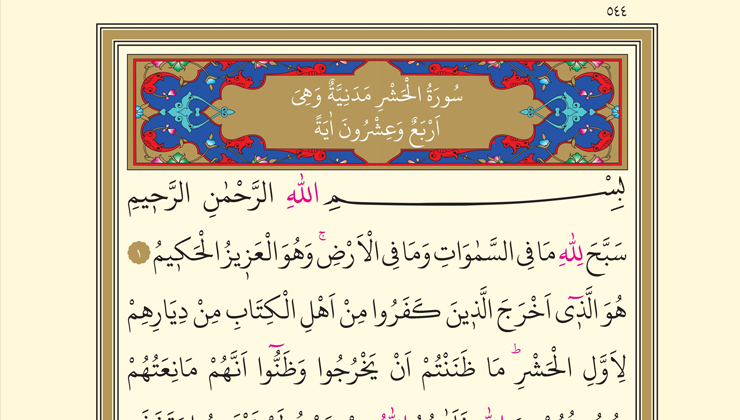 ٥٤٤
سُورَةُ الْحَشْرِ مَدَنِيَّةٌ وَهِىَ
اَرْبَعٌ وَعِشْرُونَ اٰيَةً
بِسْمِ اللّٰهِ الرَّحْمٰنِ الرَّحٖيمِ
سَبَّحَ لِلّٰهِ مَا فِى السَّمٰوَاتِ وَمَا فِى الْاَرْضِۚ وَهُوَ الْعَزٖيزُ الْحَكٖيمُ ١
هُوَ الَّذٖٓى اَخْرَجَ الَّذٖينَ كَفَرُوا مِنْ اَهْلِ الْكِتَابِ مِنْ دِيَارِهِمْ
لِاَوَّلِ الْحَشْرِؕ مَا ظَنَنْتُمْ اَنْ يَخْرُجُوا وَظَنُّٓوا اَنَّهُمْ مَانِعَتُهُمْ